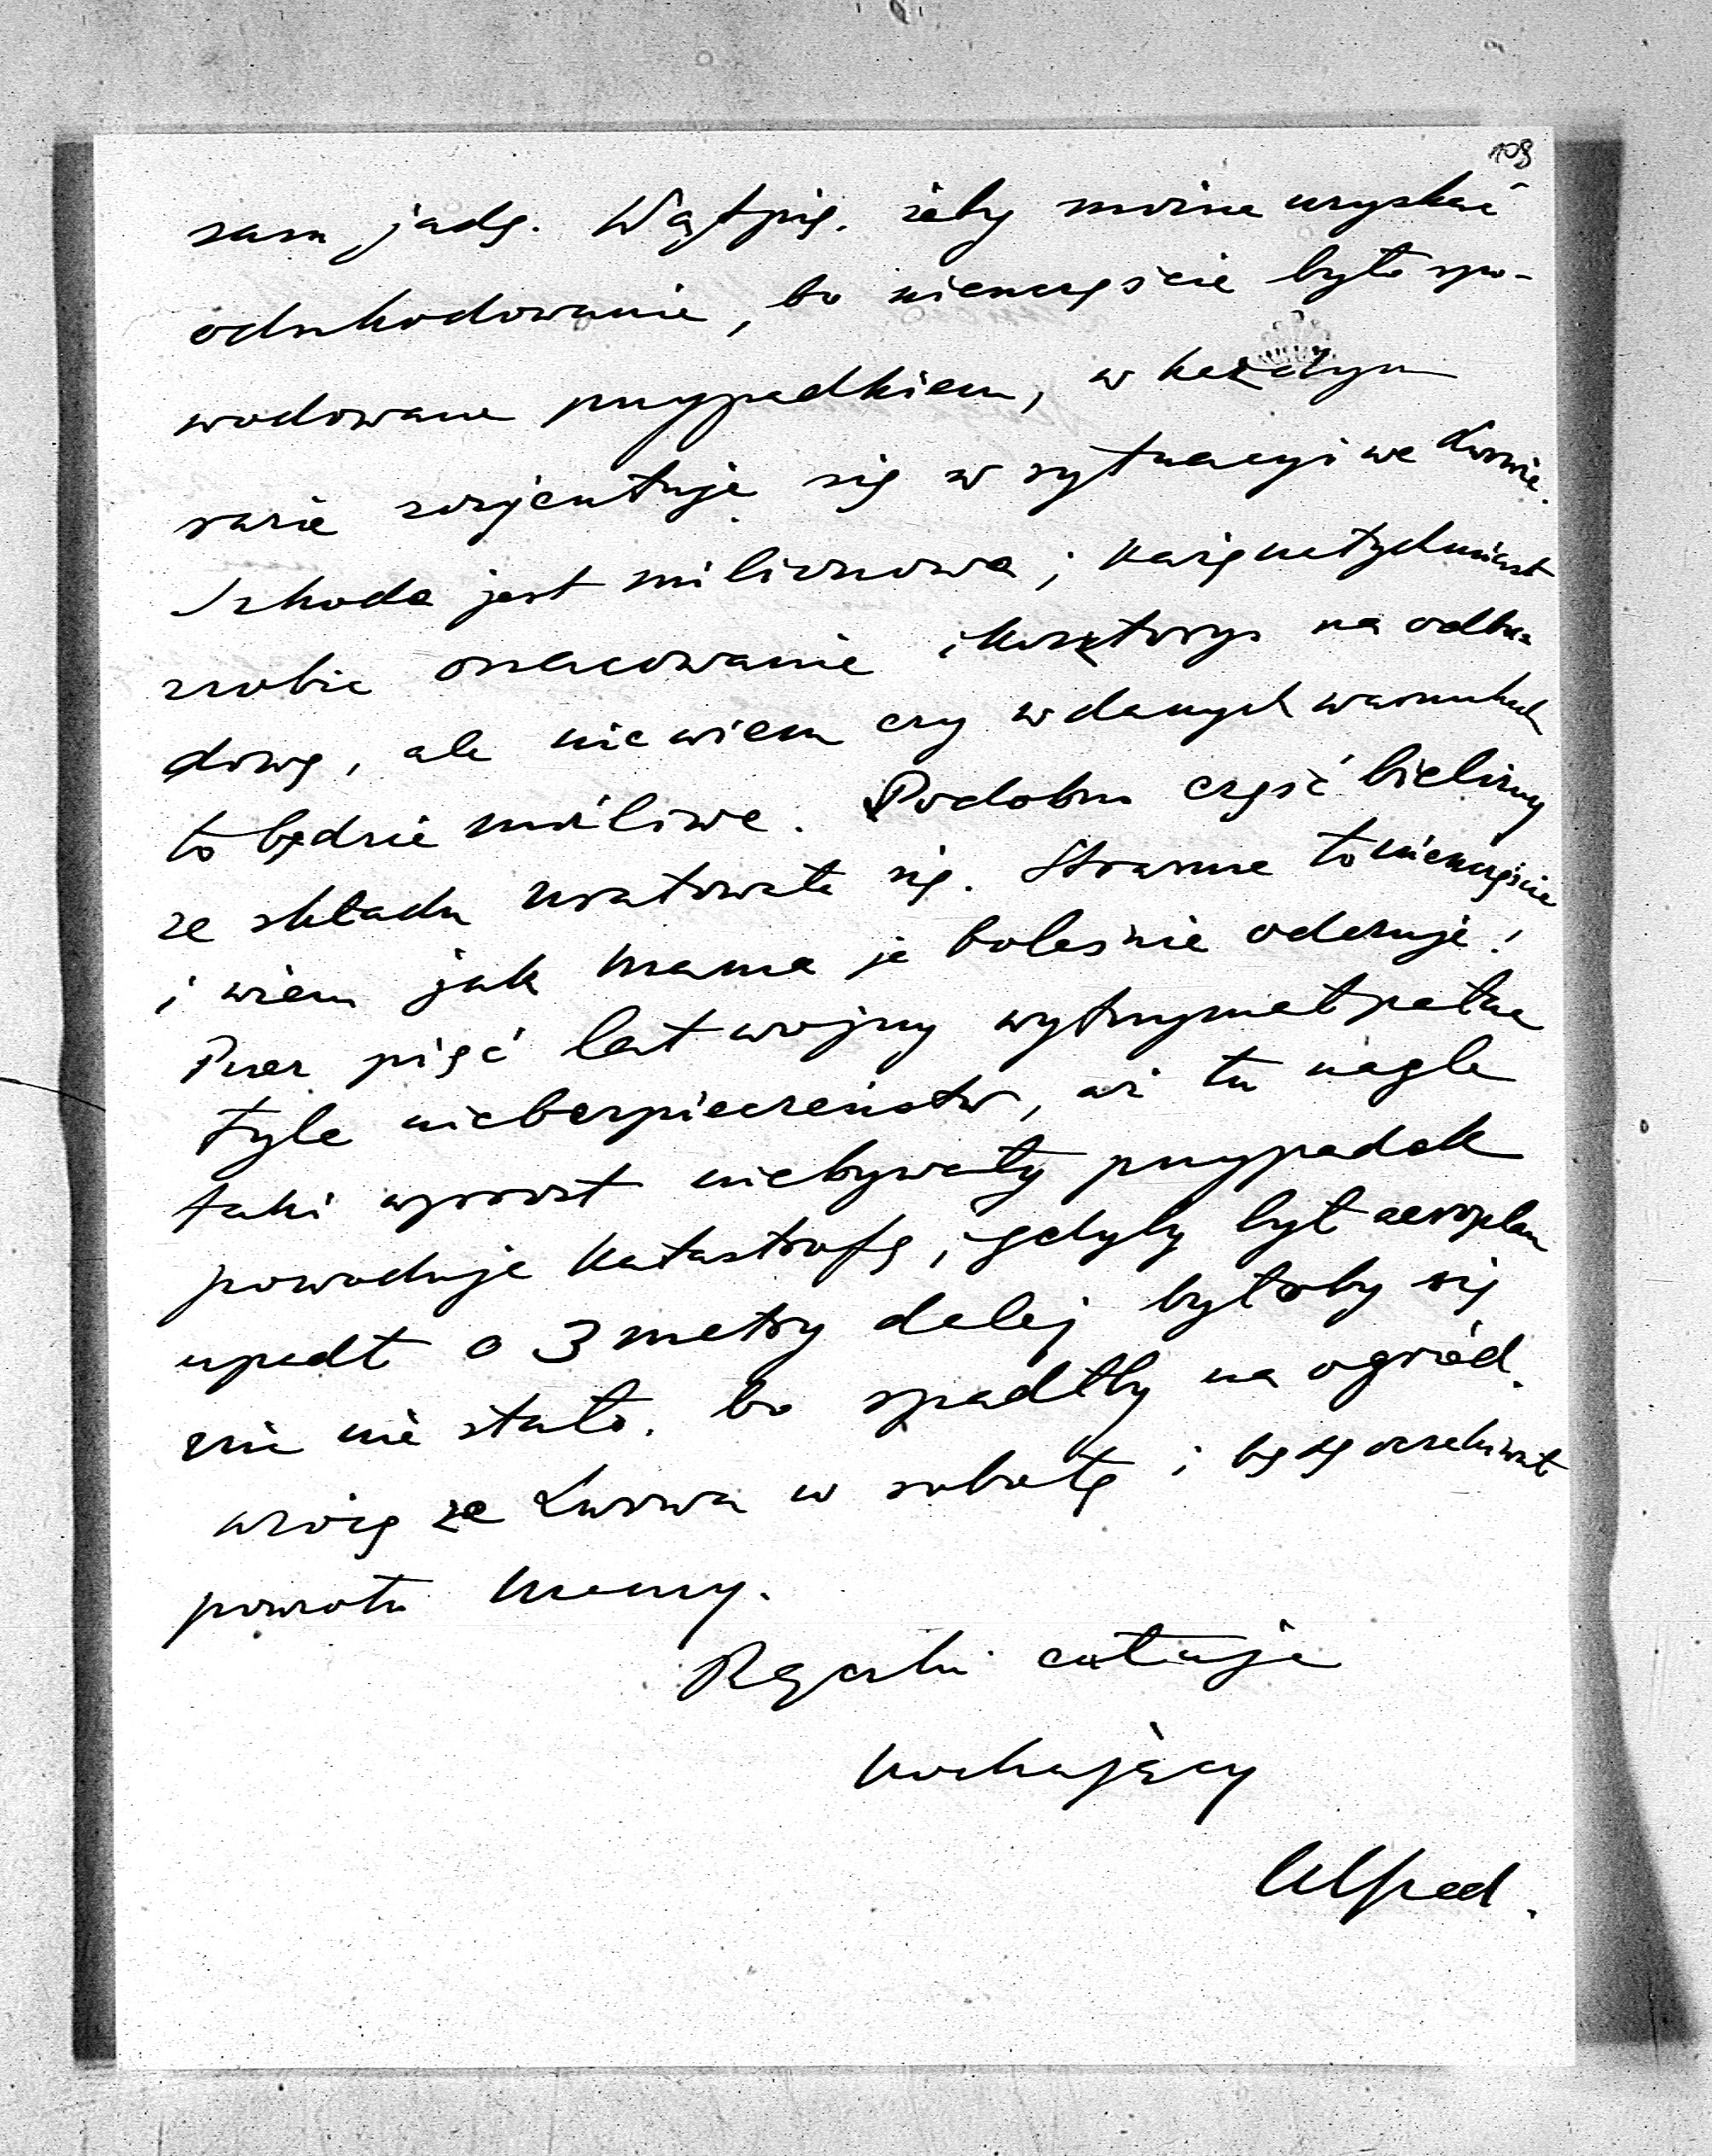 108
sam jadę. Wątpię, żeby można uzyskać
odszkodowanie, bo nieszczęście było spo-
wodowane przypadkiem, w każdym
razie zorjentuję się w sytuacyi we Lwowie.
Szkoda jest milionowa; każę natychmiast
zrobić oszacowanie i kosztorys na odbu
dowę, ale nie wiem czy w danych warunkach
to będzie możliwe. Podobno część bielizny
ze składu uratowała się. Straszne to nieszczęście
i wiem jak Mama je boleśnie odczuje!
Przez pięć lat wojny wytrzymał pałac
tyle niebezpieczeństw, aż tu nagle
taki wprost niebywały przypadek
powoduje katastrofę, i gdyby był aeroplan
upadł o 3 metry dalej byłoby się
nic nie stało, bo spadłby na ogród.
Wrócę ze Lwowa w sobotę i będę oczekiwał
powrotu Mamy.
Rączki całuję
kochający
Alfred.